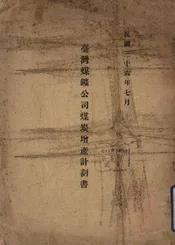 民國三十六年七月
臺灣煤鑛公司煤炭增產計劃書